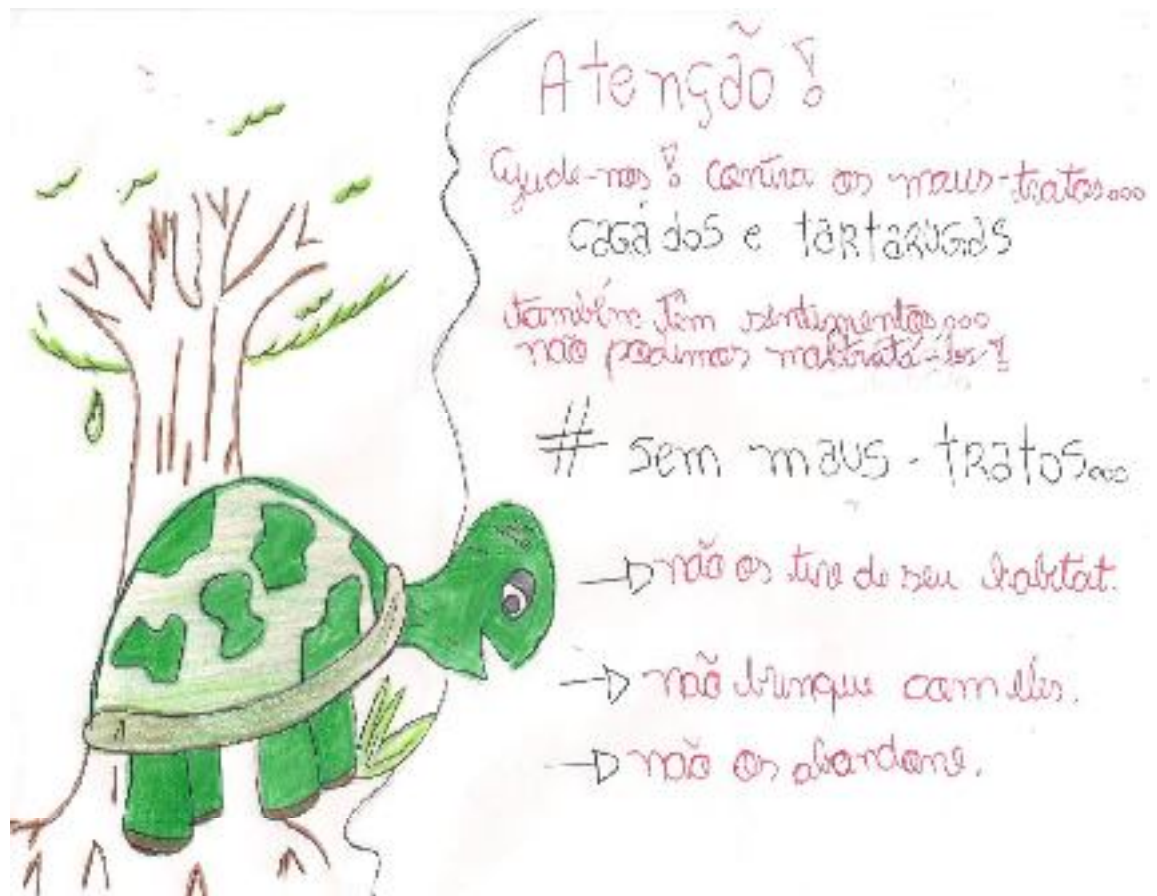 Atenção!
Ajude-nos! contra os maus-tratos...
cagádos e tartarugas
também têm sentimentos...
não podemos maltratá-los!
# sem maus-tratos...
→ não os tire de seu habitat.
→ não brinque com eles.
→ não os abandone.